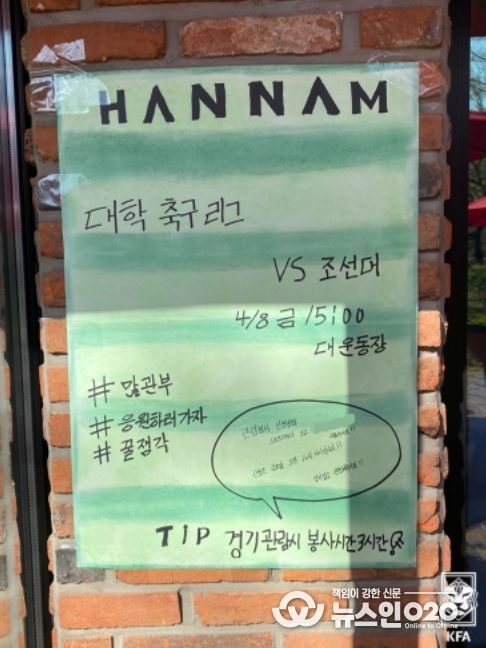 HANNAM
대학 축구 리그
VS 조선대
4/8 금 15:00
대운동장
# 많관부
# 응원하러가자
# 꿀잼각
TIP 경기관람시 봉사시간 3시간
책임이 강한 신문
뉴스인020
Online to Offline
KFA